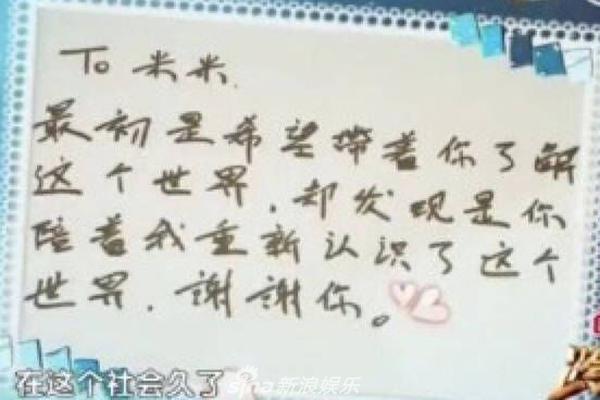 To 米米.
最初是希望带着你了解
这个世界,却发现是你
陪着我重新认识了这个
世界.謝謝你。
在这个社会久了
sina新浪娱乐